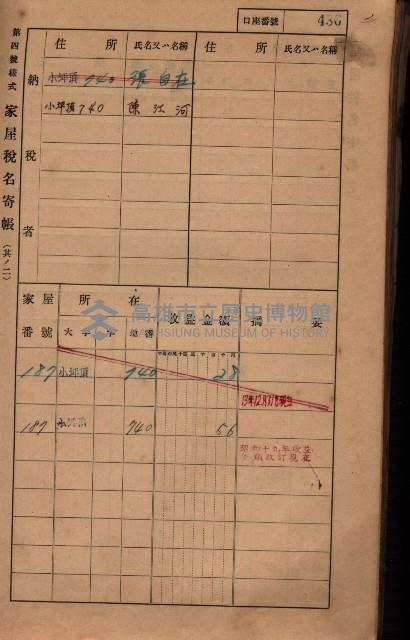 口座番號 430
第四號樣式 家屋稅名寄帳(其ノ二)
納稅者
住所 氏名又ハ名稱 住所 氏名又ハ名稱
小坪頂 740 張自在
小坪頂 740 陳江河
家屋番號 所在 收益金額 摘要
大字 字 地番
高雄市立歷史博物館
KAOHSIUNG MUSEUM OF HISTORY
187 小坪頂 740 28
187 小坪頂 740 56
昭和十九年收益
金額改訂現在